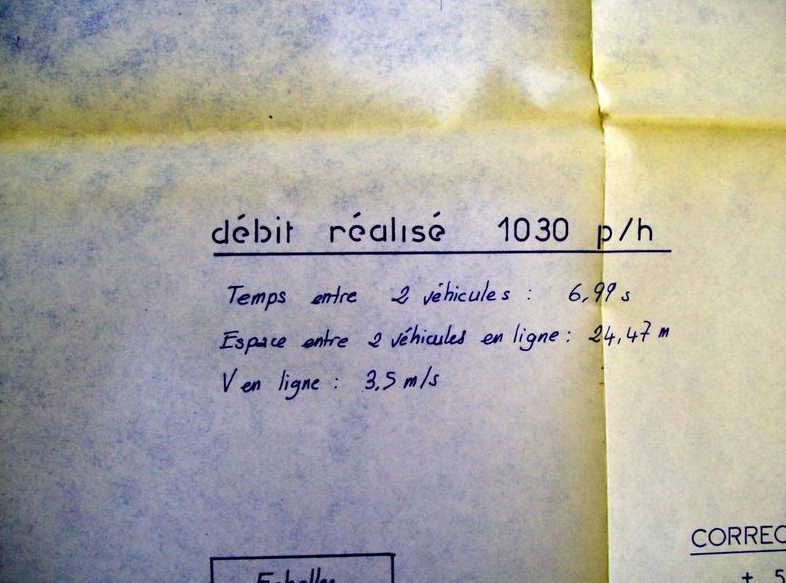 débit réalisé 1030 p/h
Temps entre 2 véhicules : 6,99 s
Espace entre 2 véhicules en ligne : 24,47 m
V en ligne : 3,5 m/s
CORREC
+ 5
Echelles